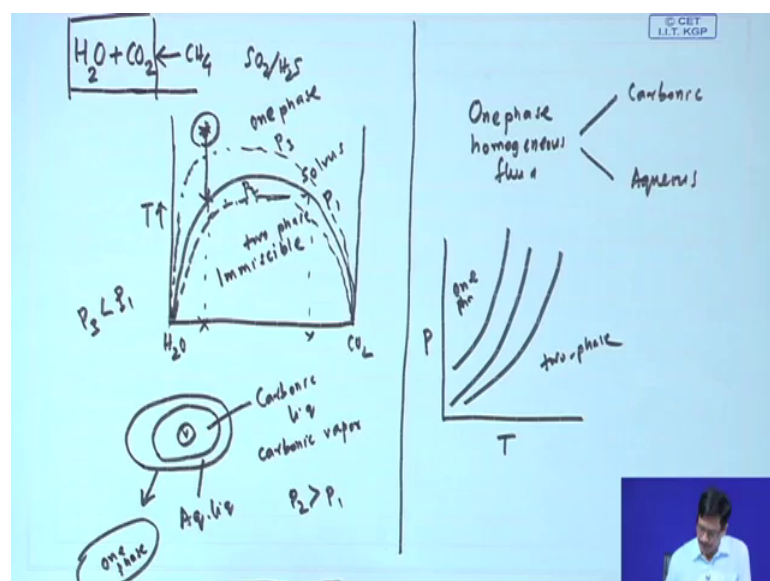 © CET
I.I.T. KGP
H₂O + CO₂ ← CH₄ SO₂/H₂S
one phase
P₃
Solvus
P₂
P₁
T↑
two phase
Immiscible
P₃ < P₁
H₂O
CO₂
Carbonic
liq
carbonic vapor
V
Aq. liq
P₂ > P₁
one
phase
One phase
homogeneous
fluid
Carbonic
Aqueous
one
phn
P
two-phase
T